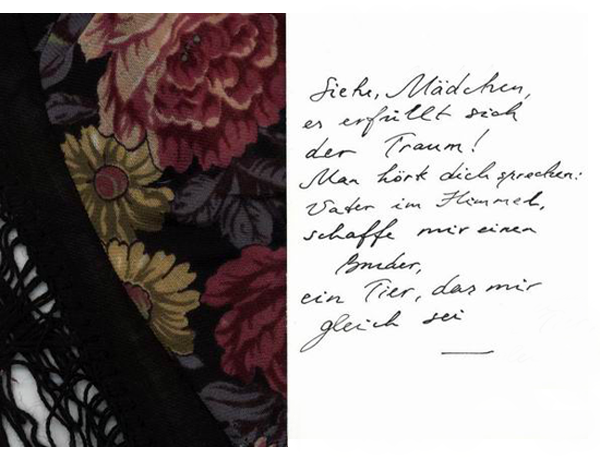 Siehe, Mädchen,
es erfüllt sich
der Traum!
Man hört dich sprechen:
Vater im Himmel,
schaffe mir einen
Bruder,
ein Tier, das mir
gleich sei